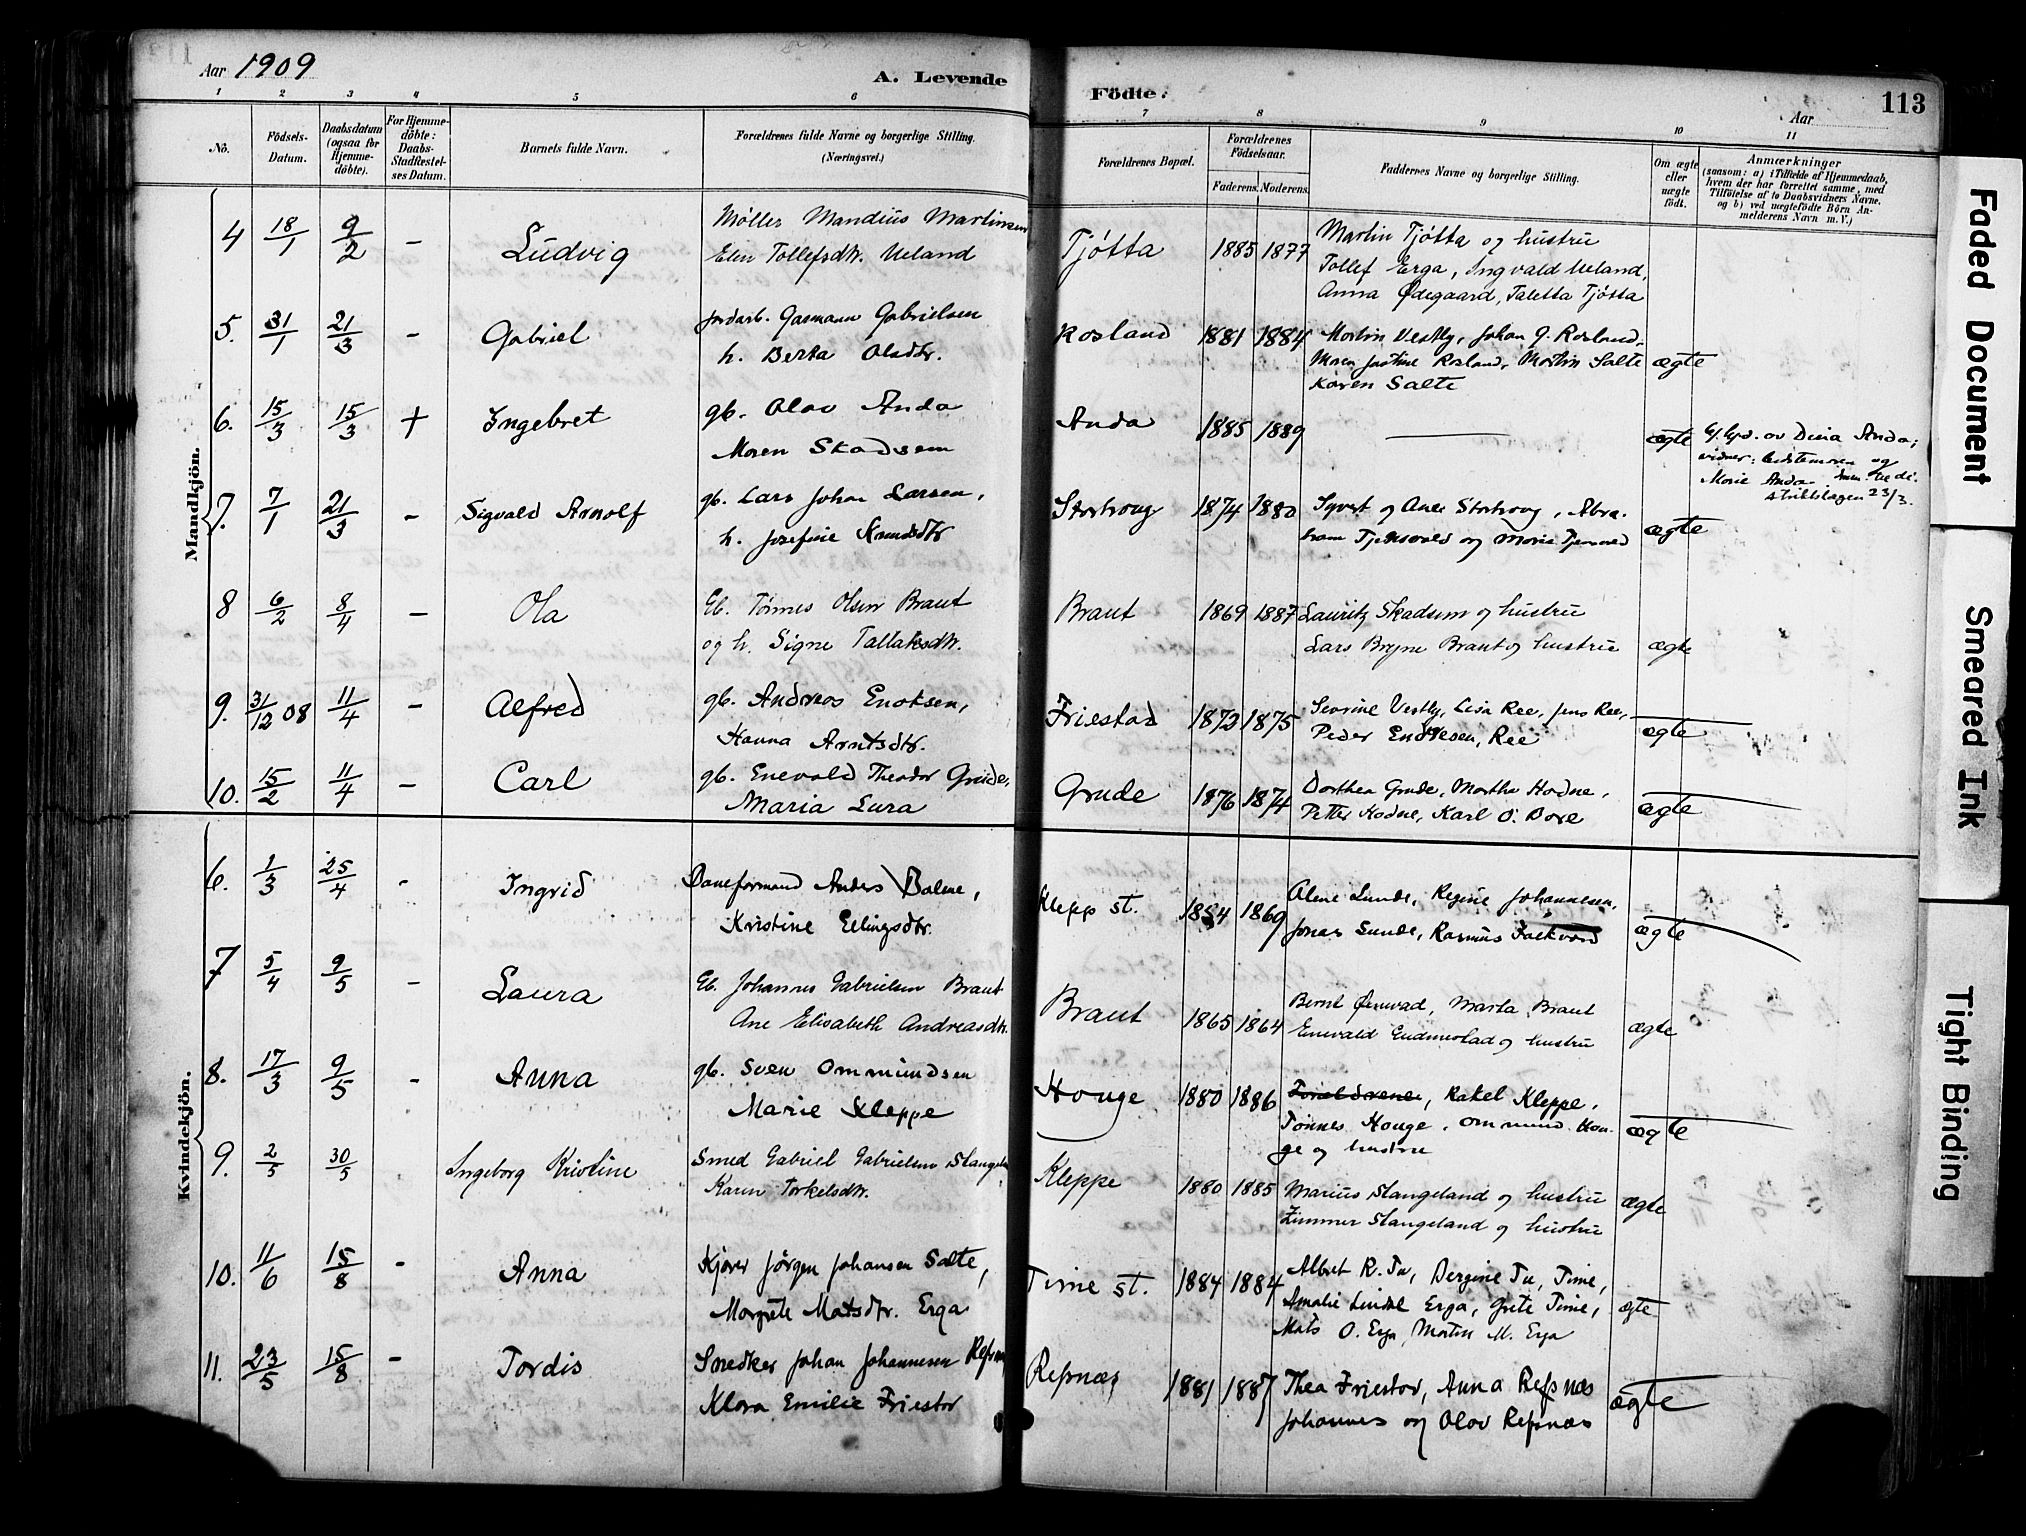 Aar 1909
A. Levende
Födte.
113
Aar
1 2 3 4 5 6 7 8 9 10 11
No.
Födsels-Datum.
Daabsdatum (ogsaa for Hjemmedöbte).
For Hjemmedöbte: Daabs-Stadfæstelses Datum.
Barnets fulde Navn.
Forældrenes fulde Navne og borgerlige Stilling. (Næringsvei.)
Forældrenes Bopæl.
Forældrenes Födselsaar.
Faderens. Moderens.
Faddernes Navne og borgerlige Stilling.
Om ægte eller uægte födt.
Anmærkninger
(saasom: a) i Tilfælde af Hjemmedaab,
hvem der har forrettet samme, med
Tilföielse af to Daabsvidners Navne,
og b) ved uægtefödte Börn An-
melderens Navn m. V.)
Mandkjön.
4 18/1 9/2 - Ludvig
Møller Mandius Martinsen
Elen Tollefsdtr. Ueland
Tjøtta 1885 1877
Martin Tjøtta og hustru
Tollef Erga, Ingvald Ueland,
Anna Ødegaard, Taletta Tjøtta
5. 31/1 21/3 - Gabriel
jordarb. Gasmann Gabrielsen
h. Berta Olsdtr.
Rosland 1881 1884
Martin Vestly, Johan G. Rosland,
Maren Justine Rosland, Martin Salte
Karen Salte
ægte
6. 15/3 15/3 + Ingebret
gb. Olav Anda
Maren Skadsem
Anda 1885 1889
ægte
av Dina Anda;
vidner: bedstemoren og
Marie Anda
23/3.
7. 7/1 21/3 - Sigvald Arnolf
gb. Lars Johan Larsen,
h. Josefine Knudsdtr
Storhoug 1874 1880
Syvert og Ane Storhoug, Abra-
ham Tjensvold og Marie Tjensvold
ægte
8 6/2 8/4 - Ola
Gb. Tönnes Olsen Braut
og h. Signe Tallaksdtr.
Braut 1869 1887
Lauritz Skadsem og hustru
Lars Bryne Braut og hustru
ægte
9. 31/12 08 11/4 - Alfred
gb. Andreas Enoksen,
Hanna Arntsdtr.
Friestad 1872 1875
Severine Vestly, Lisa Ree, Jens Ree,
Peder Endresen, Ree
ægte
10. 15/2 11/4 - Carl
gb. Enevald Theodor Grude,
Maria Lura
Grude 1876 1874
Dorthea Grude, Martha Hodne,
Petter Hodne, Karl O. Bore
ægte
Kvindekjön.
6. 1/3 25/4 - Ingrid
Baneformand Anders Balne,
Kristine Ellingsdtr.
Klepp st. 1854 1869
Alene Lunde, Regine Johannesen,
Jonas Sunde, Rasmus Falkvard
ægte
7 5/4 9/5 - Laura
Gb. Johannes Gabrielsen Braut
Ane Elisabeth Andreasdtr.
Braut 1865 1864
Bernt Øxnevad, Marta Braut
Enevald Gudmestad og hustru
ægte
8. 17/3 9/5 - Anna
gb. Sven Ommundsen
Marie Kleppe
Houge 1880 1886
Forældrene, Rakel Kleppe,
Tönnes Houge, Ommund Hou-
ge og hustru
ægte
9. 2/5 30/5 Ingeborg Kristine
Smed Gabriel Gabrielsen Stangeland
Karen Torkelsdtr.
Kleppe 1880 1885
Marius Stangeland og hustru
Zimmer Stangeland og hustru
ægte
10. 11/6 15/8 - Anna
Kjører Jørgen Johansen Salte,
Margrete Matsdtr. Erga
Time st. 1884 1884
Albert R. Tu, Bergine Tu, Time,
Amalie Lindal Erga, Grete Time,
Mats O. Erga, Martin M. Erga
ægte
11. 23/5 15/8 - Tordis
Snedker Johan Johannesen Refsnæs
Klara Emilie Friestad
Refsnæs 1881 1887
Thea Friestad, Anna Refsnæs
Johannes og Olav Refsnæs
ægte
Faded Document
Smeared Ink
Tight Binding